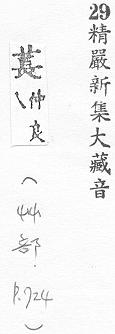 29精嚴新集大藏音
萇
仲良
(艸部.P.724)